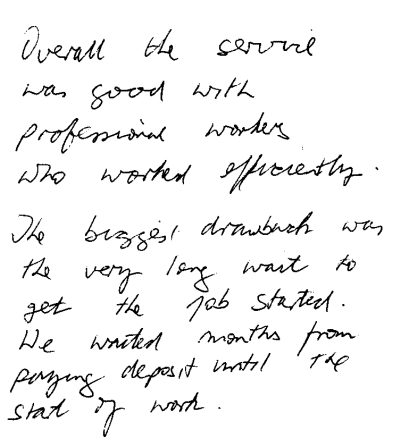 Overall the service
was good with
professional workers
who worked efficiently.
The biggest drawback was
the very long wait to
get the job started.
We waited months from
paying deposit until the
start of work.